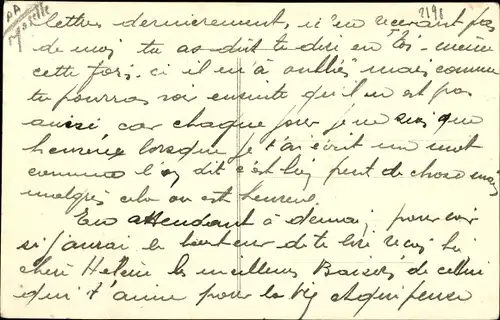 PA
Moselle
2198
lettres dernierement, n'en recevant pas
de moi tu as doit te dire en toi-même
cette fois-ci il m'a oublié mais comme
tu pourras voir ensuite qu'il n'est pas
ainsi car chaque jour je ne suis que
heureux lorsque je t'ai écrit un mot
comme l'on dit c'est bien peut de chose mais
malgrés cela on est heureux.
En attendant à demain pour voir
si j'aurai le bonheur de te lire reçois
chère Hélène les meilleurs Baisers de celui
qui t'aime pour la vie et qui pense